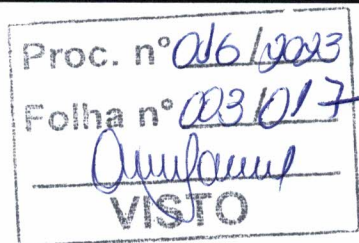 Proc. n° 016/2023
Folha n° 003/017
VISTO